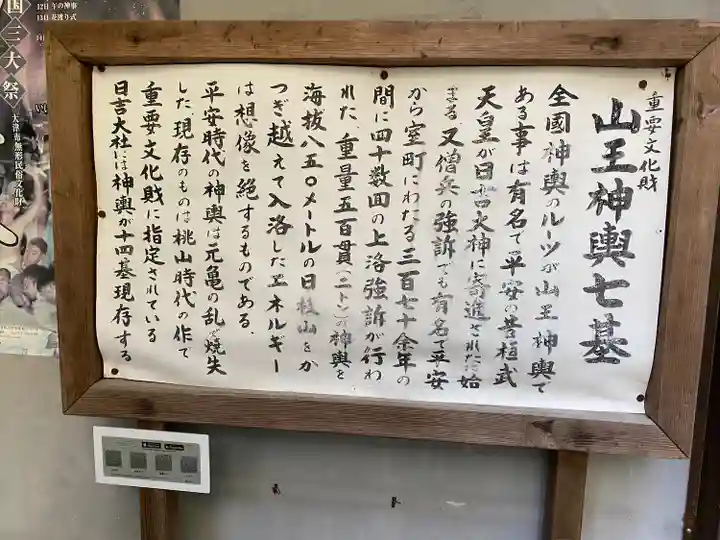 重要文化財
山王神輿七基
全國神輿のルーツが山王神輿で
ある事は有名で平安の昔桓武
天皇が日吉大神に寄進された始
まる、又僧兵の強訴でも有名で平安
から室町にわたる三百七十余年の
間に四十数回の上洛強訴が行わ
れた、重量五百貫(二トン)の神輿を
海抜八五〇メートルの日枝山をか
つぎ越えて入洛したエネルギー
は想像を絶するものである.
平安時代の神輿は元亀の乱で焼失
した現存のものは桃山時代の作で
重要文化財に指定されている
日吉大社には神輿が十四基現存する
国三大祭
大津市無形民俗文化財
12日 午の神事
13日 花渡り式